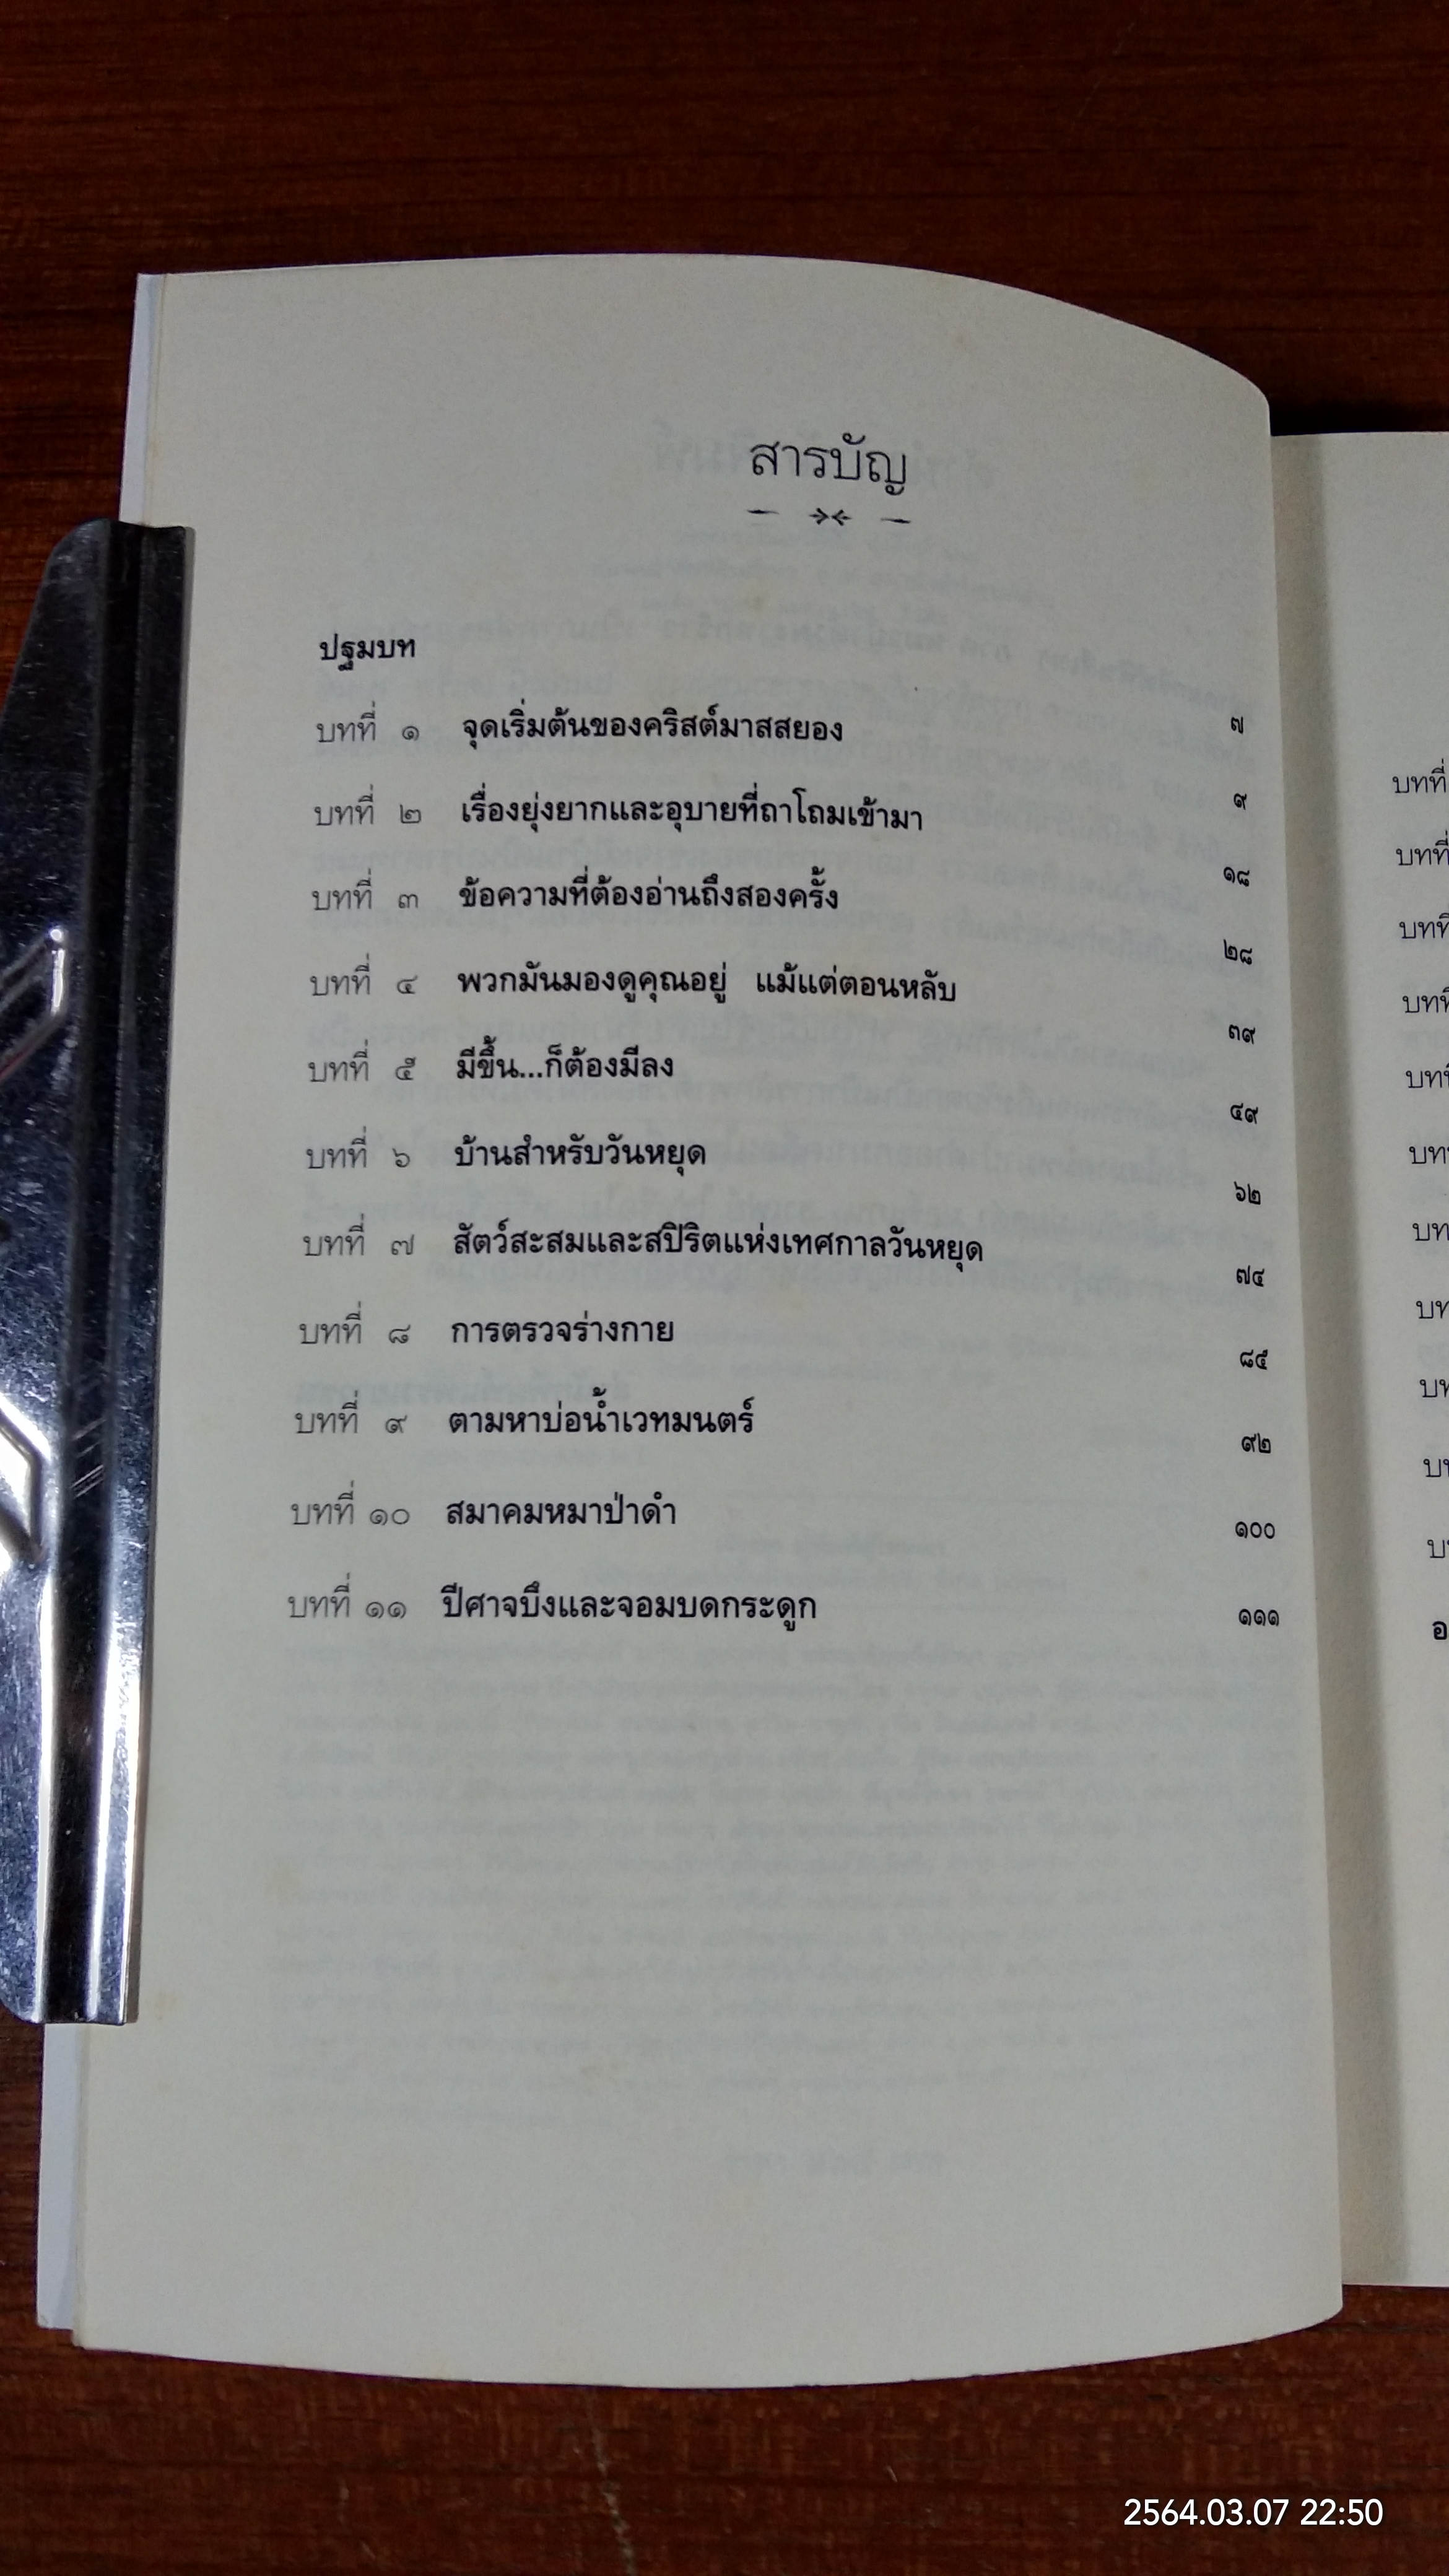 สารบัญ
ปฐมบท ๗
บทที่ ๑ จุดเริ่มต้นของคริสต์มาสสยอง ๙
บทที่ ๒ เรื่องยุ่งยากและอุบายที่ถาโถมเข้ามา ๑๘
บทที่ ๓ ข้อความที่ต้องอ่านถึงสองครั้ง ๒๘
บทที่ ๔ พวกมันมองดูคุณอยู่ แม้แต่ตอนหลับ ๓๙
บทที่ ๕ มีขึ้น...ก็ต้องมีลง ๔๙
บทที่ ๖ บ้านสำหรับวันหยุด ๖๒
บทที่ ๗ สัตว์สะสมและสปิริตแห่งเทศกาลวันหยุด ๗๔
บทที่ ๘ การตรวจร่างกาย ๘๕
บทที่ ๙ ตามหาบ่อน้ำเวทมนตร์ ๙๒
บทที่ ๑๐ สมาคมหมาป่าดำ ๑๐๐
บทที่ ๑๑ ปีศาจบึงและจอมบดกระดูก ๑๑๑
บทที่
บทที่
บทที่
บทที่
บทที่
2564.03.07 22:50